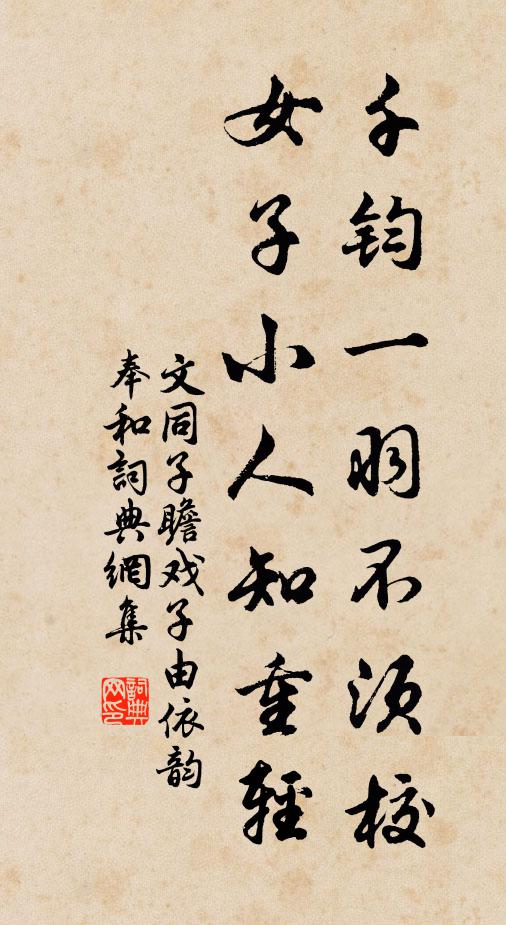 千鈞一羽不須校
女子小人知重輕
文同子瞻戏子由依韵
奉和詞典網集
詞典
网印